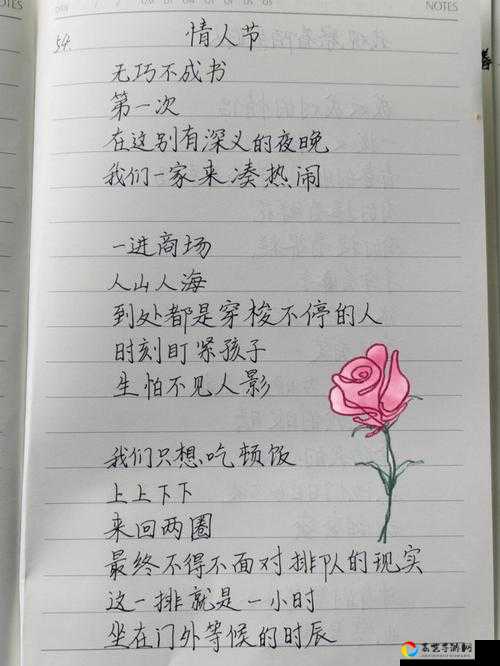 NOTES
NOTES
54.
情人节
无巧不成书
第一次
在这别有深义的夜晚
我们一家来凑热闹
一进商场
人山人海
到处都是穿梭不停的人
时刻盯紧孩子
生怕不见人影
我们只想吃顿饭
上上下下
来回两圈
最终不得不面对排队的现实
这一排就是一小时
坐在门外等候的时辰